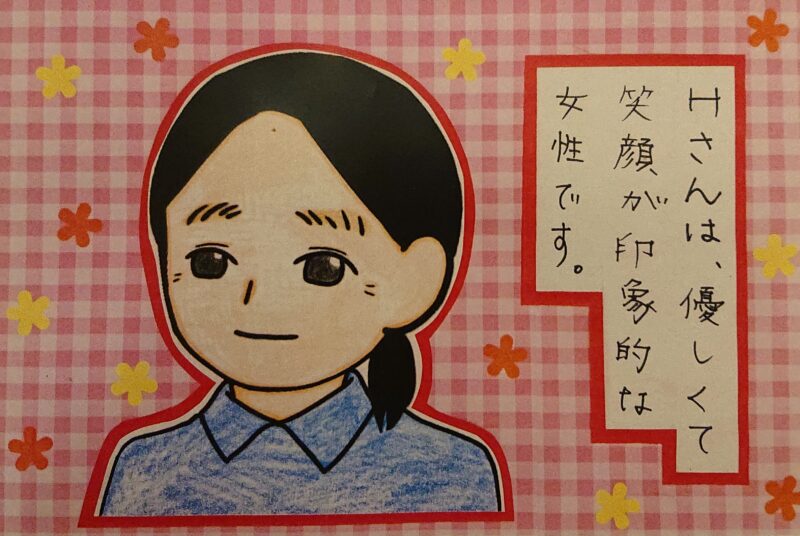 Hさんは、優しくて
笑顔が印象的な
女性です。